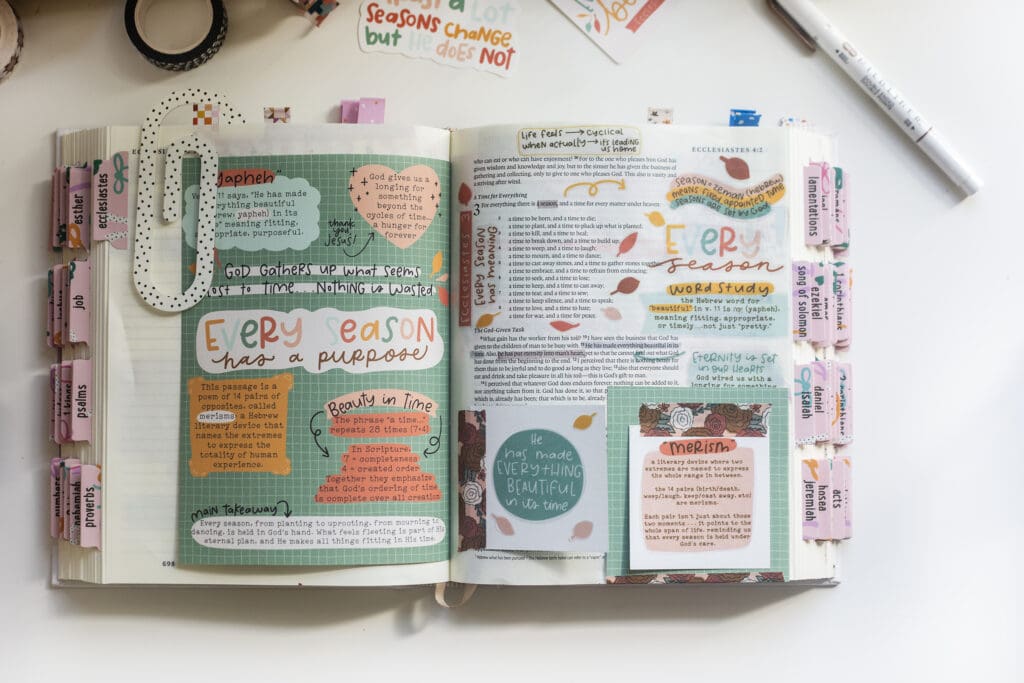 SEASONS CHANGE
but He DOES NOT
esther
ecclesiastes
job
psalms
nehemiah
proverbs
yapheh"
11 says, "He has made
erything beautiful
ebrew: yapheh) in its
" meaning fitting,
opriate, purposeful.
God gives us a
longing for
something
beyond the
cycles of time...
a hunger for
forever
thank
you
Jesus!
GOD GATHERS UP WHAT SEEMS
LOST TO TIME... NOTHING IS WASTED
EVERY SEASON
has a purpose
This passage is a
poem of 14 pairs of
opposites, called
merisms: a Hebrew
literary device that
names the extremes
to express the
totality of human
experience.
Beauty in Time
The phrase "a time..."
repeats 28 times (7×4)
In Scripture,
7 = completeness
4 = created order
Together they emphasize
that God's ordering of time
is complete over all creation
MAIN TAKEAWAY
Every season, from planting to uprooting, from mourning to
dancing, is held in God's hand. What feels fleeting is part of His
eternal plan, and He makes all things fitting in His time.
698
Life feels → cyclical
when actually → it's leading
us home
ECCLESIASTES 4:2
who can eat or who can have enjoyment? 26 For to the one who pleases him God has
given wisdom and knowledge and joy, but to the sinner he has given the business of
gathering and collecting, only to give to one who pleases God. This also is vanity and
a striving after wind.
A Time for Everything
3 For everything there is a season, and a time for every matter under heaven:
a time to be born, and a time to die;
a time to plant, and a time to pluck up what is planted;
a time to kill, and a time to heal;
a time to break down, and a time to build up;
a time to weep, and a time to laugh;
a time to mourn, and a time to dance;
a time to cast away stones, and a time to gather stones together;
a time to embrace, and a time to refrain from embracing;
a time to seek, and a time to lose;
a time to keep, and a time to cast away;
a time to tear, and a time to sew;
a time to keep silence, and a time to speak;
a time to love, and a time to hate;
a time for war, and a time for peace.
Ecclesiastes 3
EVERY SEASON
has meaning
The God-Given Task
9 What gain has the worker from his toil? 10 I have seen the business that God
has given to the children of man to be busy with. 11 He has made everything beautiful in its
time. Also, he has put eternity into man's heart, yet so that he cannot find out what God
has done from the beginning to the end. 12 I perceived that there is nothing better for
them than to be joyful and to do good as long as they live; 13 also that everyone should
eat and drink and take pleasure in all his toil—this is God's gift to man.
14 I perceived that whatever God does endures forever; nothing can be added to it,
nor anything taken from it. God has done it, so that
which is already has been; that which is to be, already
SEASON = ZEMAN (HEBREW)
MEANS FIXED APPOINTED TIME
SEASONS ARE SET BY GOD
EVERY
season
WORD STUDY
the Hebrew word for
"beautiful" in v. 11 is
(yapheh),
meaning fitting, appropriate,
or timely...not just "pretty."
ETERNITY IS SET
IN OUR HEARTS
GOD WIRED US WITH
He
has made
EVERYTHING
BEAUTIFUL
in its time
merism
a literary device where two
extremes are named to express
the whole range in between.
the 14 pairs (birth/death,
weep/laugh, keep/cast away, etc)
are merisms.
Each pair isn't just about those
two moments... it points to the
whole span of life, reminding us
that every season is held under
God's care.
lamentations
song of solomon
ezekiel
isaiah
daniel
jeremiah
hosea
acts